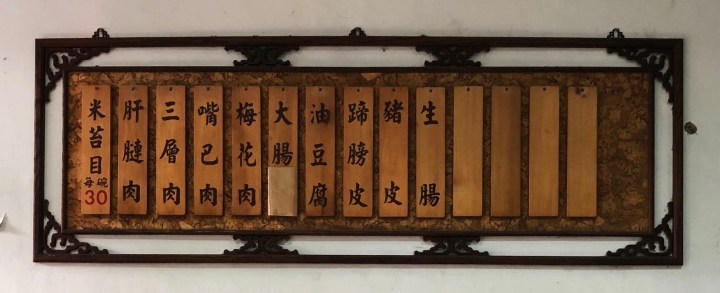 生腸
豬皮
蹄膀皮
油豆腐
大腸
梅花肉
嘴巴肉
三層肉
肝膢肉
米苔目
每碗
30